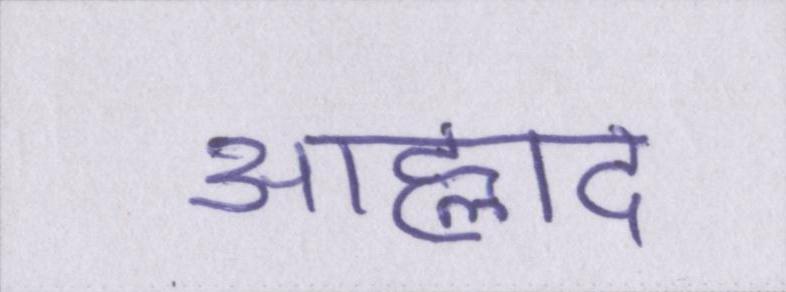 आह्लाद